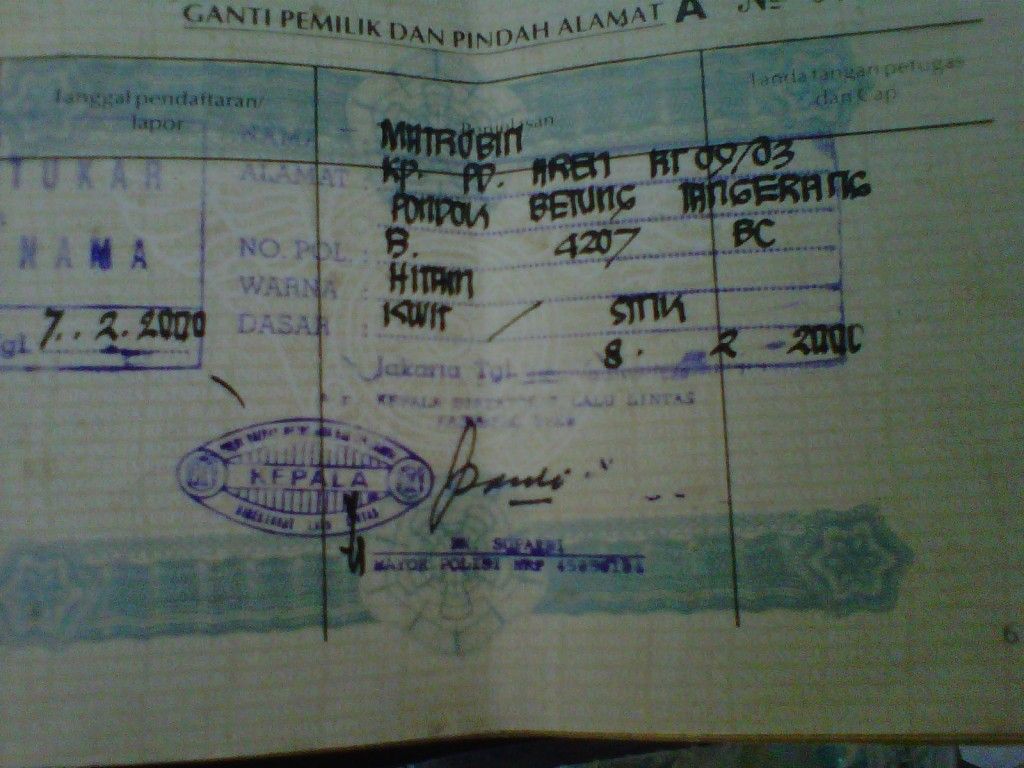 GANTI PEMILIK DAN PINDAH ALAMAT A No
Tanggal pendaftaran/
lapor
Penjelasan
Tanda tangan petugas
dan Cap
TUKAR
NAMA
Tgl 7.. 2. 2000
NAMA : MATROBIN
ALAMAT : KP. PD. AREN RT 09/03
PONDOK BETUNG TANGERANG
NO. POL : B. 4207 BC
WARNA : HITAM
DASAR : KWIT / STNK
Jakarta Tgl. 8. 2 - 2000
KEPALA LALU LINTAS
KEPALA
DIREKTORAT LALU LINTAS
MAYOR POLISI NRP
6